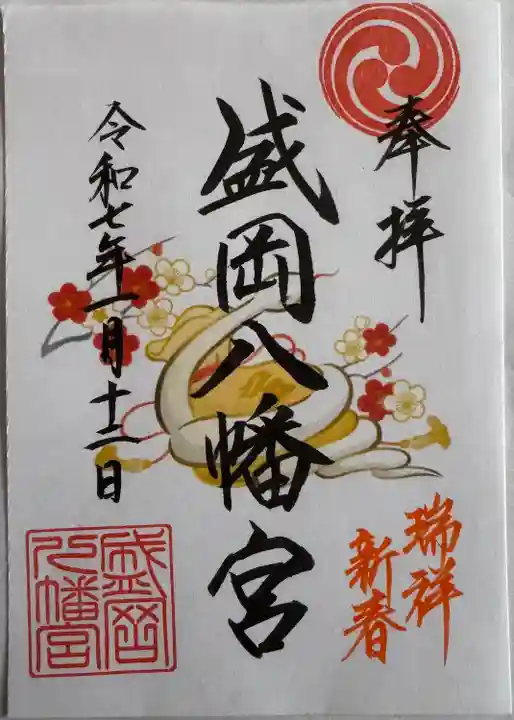 奉拝
瑞祥
新春
盛岡八幡宮
令和七年一月十二日
盛岡
八幡宮